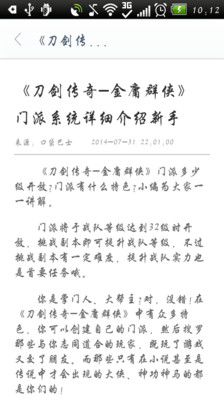 3G
10,12
《刀剑传...
《刀剑传奇—金庸群侠》
门派系统详细介绍新手
来源：口袋巴士 2014-07-31 22,01,00
《刀剑传奇—金庸群侠》门派多少
级开放?门派有什么特色?小编为大家一
一讲解。
门派将于战队等级达到32级时开
放，挑战副本即可提升战队等级，不过
挑战副本有一定难度，提升战队实力也
是首要任务哦。
你是掌门人、大帮主?对，没错!在
《刀剑传奇—金庸群侠》中有众多特
色，你可以创建自己的门派，然后找罗
那些与你志同道合的玩家，既玩了游戏
又交了朋友。而那些只有在小说甚至是
传说中才会出现的大侠、神功神马的都
是你们的!